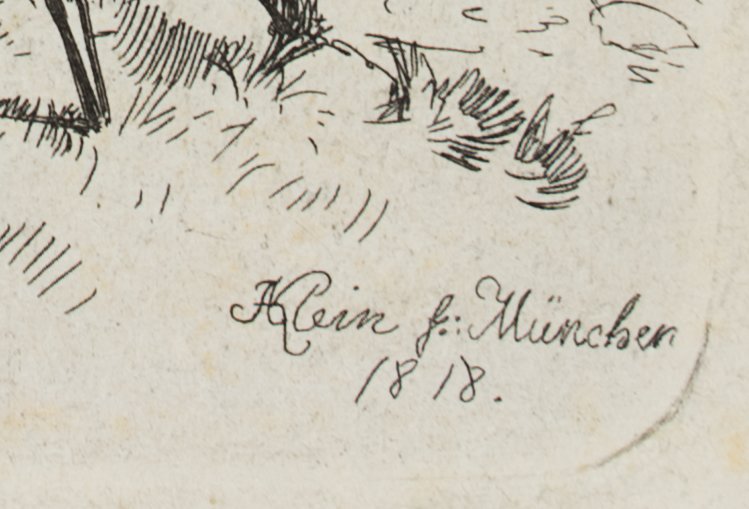 AKlein f: München
1818.